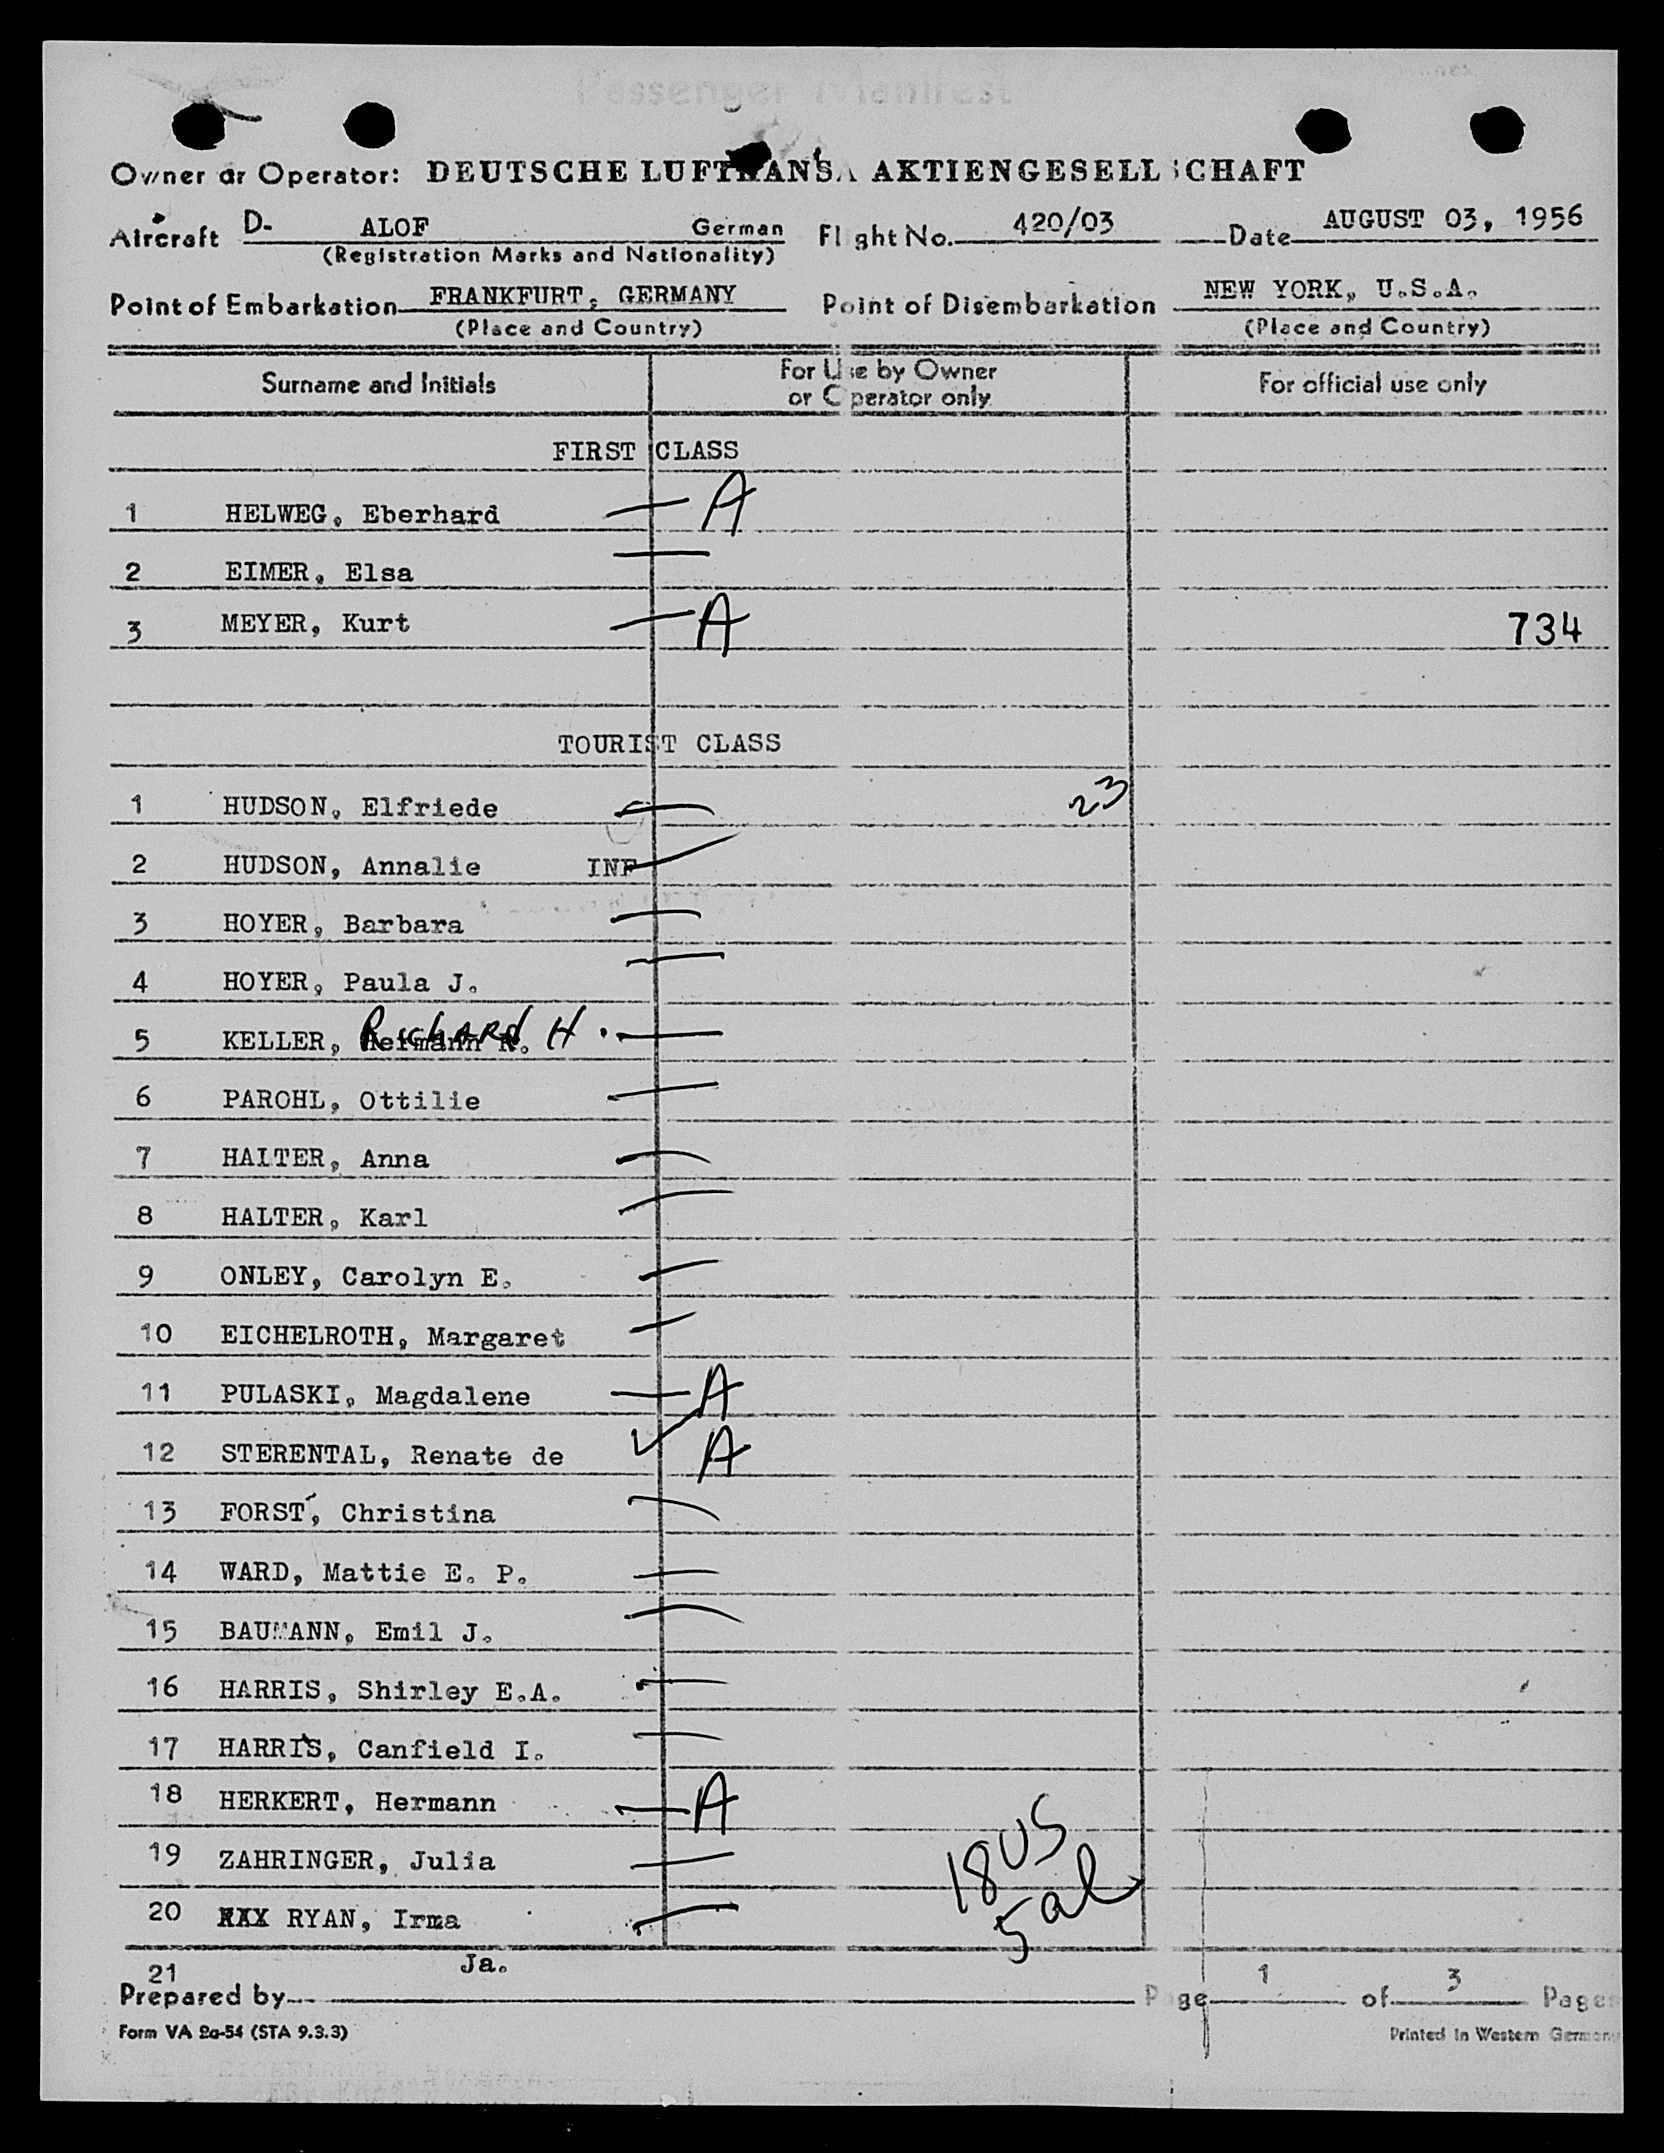 Passenger Manifest
Owner or Operator: DEUTSCHE LUFTHANSA AKTIENGESELLSCHAFT
Aircraft D- ALOF German Flight No. 420/03 Date AUGUST 03, 1956
(Registration Marks and Nationality)
Point of Embarkation FRANKFURT, GERMANY Point of Disembarkation NEW YORK, U.S.A.
(Place and Country) (Place and Country)
Surname and Initials For Use by Owner or Operator only For official use only
FIRST CLASS
1 HELWEG, Eberhard — A
2 EIMER, Elsa —
3 MEYER, Kurt — A 734
TOURIST CLASS
1 HUDSON, Elfriede — 23
2 HUDSON, Annalie INF —
3 HOYER, Barbara —
4 HOYER, Paula J. —
5 KELLER, Hermann R. RICHARD H. —
6 PAROHL, Ottilie —
7 HALTER, Anna —
8 HALTER, Karl —
9 ONLEY, Carolyn E. —
10 EICHELROTH, Margaret —
11 PULASKI, Magdalene — A
12 STERENTAL, Renate de ✓ A
13 FORST, Christina —
14 WARD, Mattie E. P. —
15 BAUMANN, Emil J. —
16 HARRIS, Shirley E.A. —
17 HARRIS, Canfield I. —
18 HERKERT, Hermann — A
19 ZAHRINGER, Julia — 18 US
20 XXX RYAN, Irma — 5 al
21 Ja.
Prepared by Page 1 of 3 Pages
Form VA 2a-54 (STA 9.3.3) Printed in Western Germany